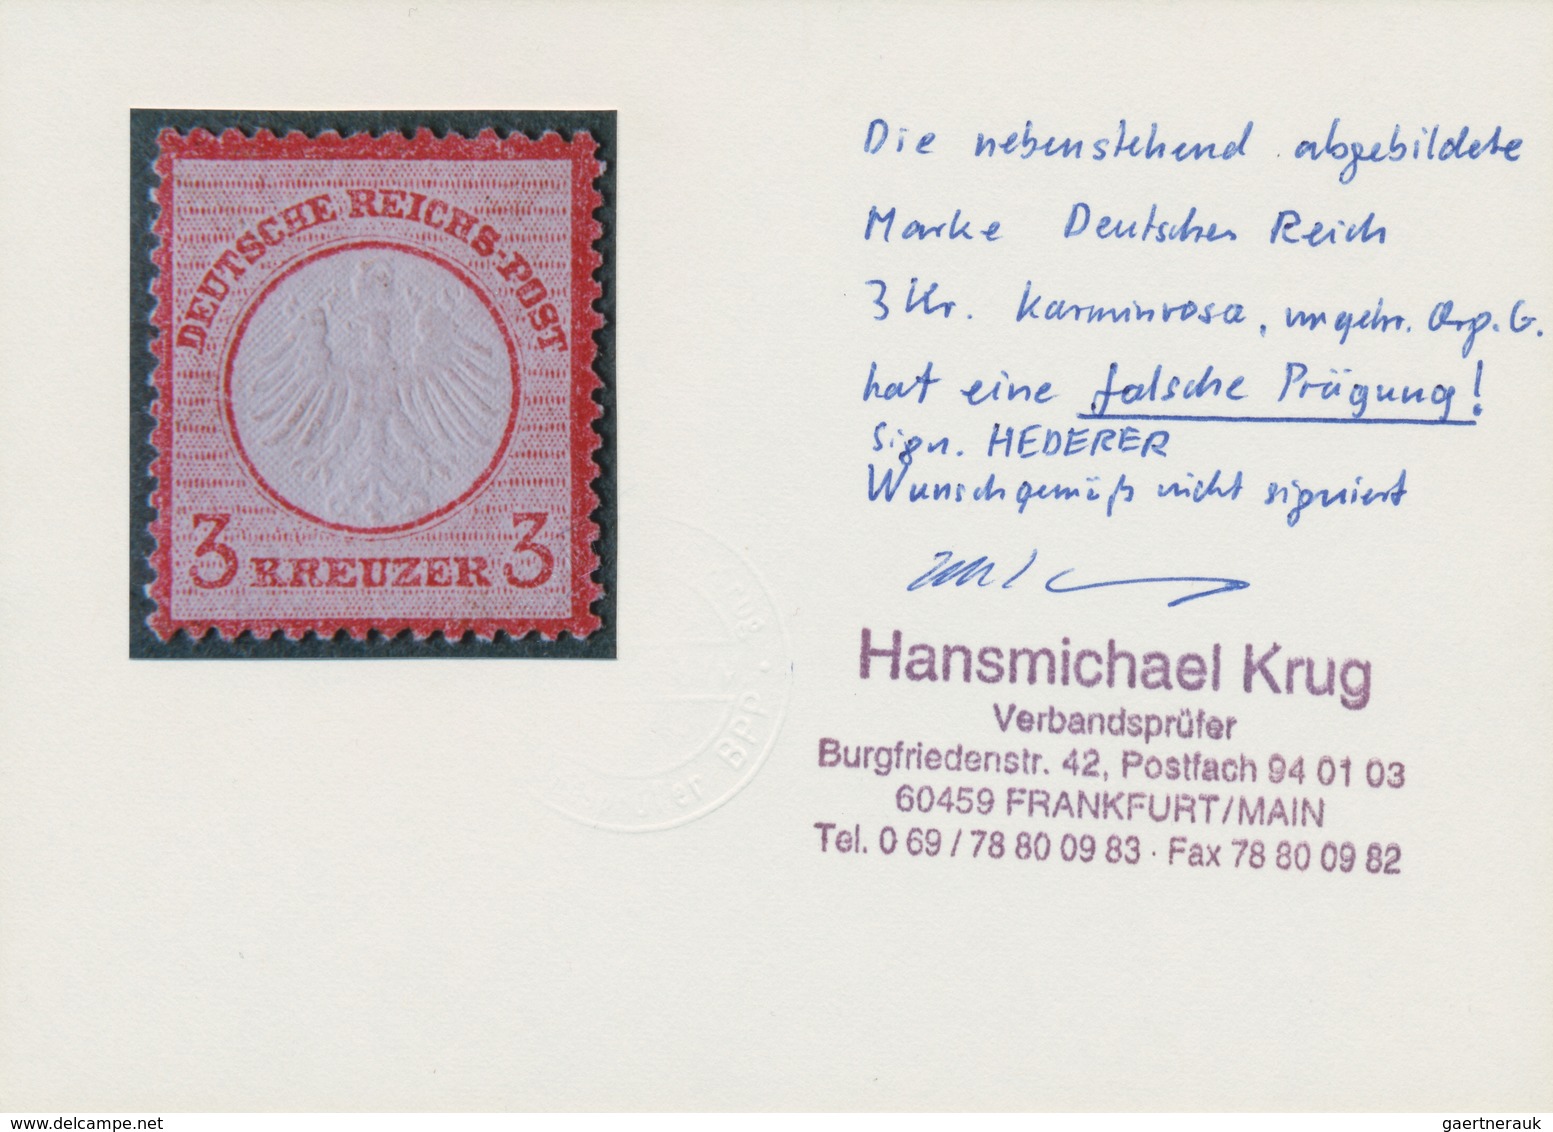 DEUTSCHE REICHS-POST
3 KREUZER 3
Die nebenstehend abgebildete
Marke Deutsches Reich
3 Kr. karminrosa, ungebr. Org. G.
hat eine falsche Prägung!
Sign. HEDERER
Wunschgemäß nicht signiert
Hansmichael Krug
Verbandsprüfer
Burgfriedenstr. 42, Postfach 94 01 03
60459 FRANKFURT/MAIN
Tel. 0 69 / 78 80 09 83 · Fax 78 80 09 82
BPP
delcampe.net
gaertnerauk